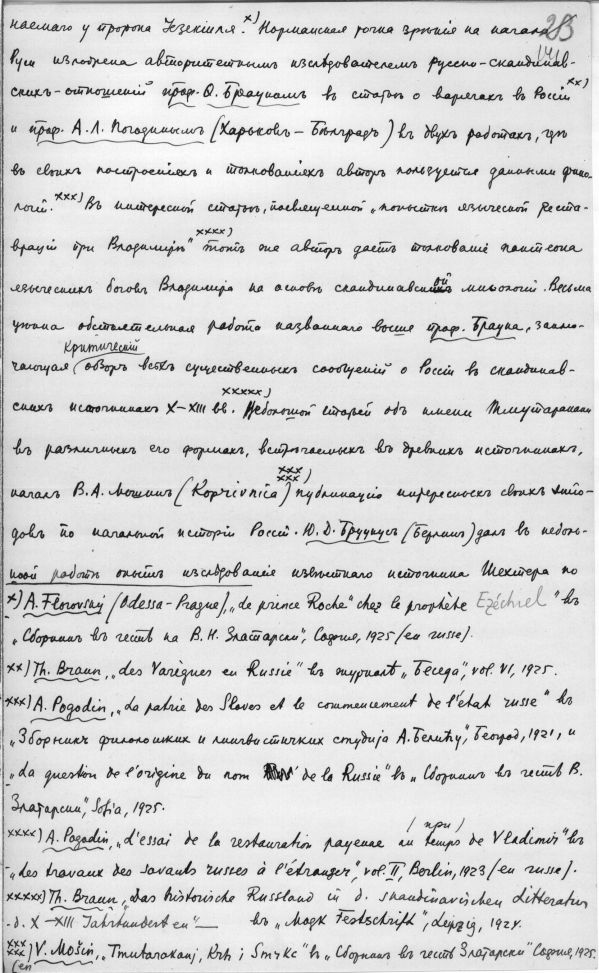 наемаго у пророка Іезекіиля.x) Норманская точка зрѣнія на начало
283
Руси изложена авторитетнымъ изслѣдователемъ русско-скандинав-
скихъ-отношеній проф. Ѳ. Брауномъ въ статьѣ о варягахъ въ Россіи xx)
и проф. А.Л. Погодинымъ (Харьковъ – Бѣлградъ) въ двухъ работахъ, гдѣ
въ своихъ построеніяхъ и толкованіяхъ авторъ пользуется данными фило-
логіи.xxx) Въ интересной статьѣ, посвященной „попыткѣ языческой реста-
враціи при Владимирѣ" xxxx) тотъ же авторъ даетъ толкованіе пантеона
языческихъ боговъ Владимира на основѣ скандинавской миѳологіи. Весьма
цѣнна обстоятельная работа названнаго выше проф. Брауна, заклю-
чающая критическій обзоръ всѣхъ существенныхъ сообщеній о Россіи въ скандинав-
скихъ источникахъ X–XIII вв. xxxxx) Небольшой статьей объ имени Тмутаракани
въ различныхъ его формахъ, встрѣчаемыхъ въ древнихъ источникахъ,
началъ В.А. Мошинъ (Koprivnica) xxx xxx) публикацію интересныхъ своихъ этю-
довъ по начальной исторіи Россіи. Ю.Д. Бруцкусъ (Берлинъ) далъ въ неболь-
шой работѣ опытъ изслѣдованія извѣстнаго источника Шехтера по
x) A. Florovskij (Odessa-Prague), „de prince Roche" chez le prophète Ezéchiel" въ
„Сборникъ въ честь на В.Н. Златарски", Софія, 1925 (en russe).
xx) Th. Braun, „des Varègues en Russie" въ журналѣ „Беседа", vol. VI, 1925.
xxx) A. Pogodin, „La patrie des Slaves et le commencement de l'état russe" въ
„Зборник филолошких и лингвистичких студија А. Белићу", Београд, 1921, и
„La question de l'origine du nom de la Russie" въ „Сборникъ въ честь В.
Златарски", Sofia, 1925.
(при)
xxxx) A. Pogodin, „d'essai de la restauration payenne au temps de Vladimir" въ
„des travaux des savants russes à l'étranger", vol. II, Berlin, 1923 (en russe).
xxxxx) Th. Braun, „Das historische Russland in d. skandinavischen Litteratur
d. X–XIII Jahrhunderten" — въ „Mogk Festschrift", Leipzig, 1924.
xxx xxx) V. Mošin, „Tmutarakanj, Krh i Smykc" въ „Сборникъ въ честь Златарски" София, 1925.
(en